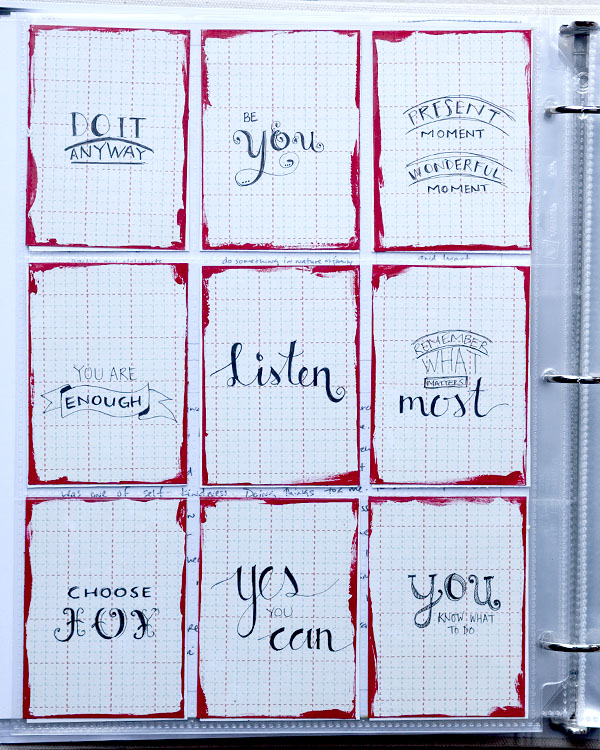 DO IT
ANYWAY
BE
you
PRESENT
MOMENT
WONDERFUL
MOMENT
do something in nature
and heart
YOU ARE
ENOUGH
Listen
REMEMBER
WHAT
MATTERS
most
was one of self kindness Doing things for me
CHOOSE
JOY
yes
YOU
can
YOU
KNOW WHAT
TO DO